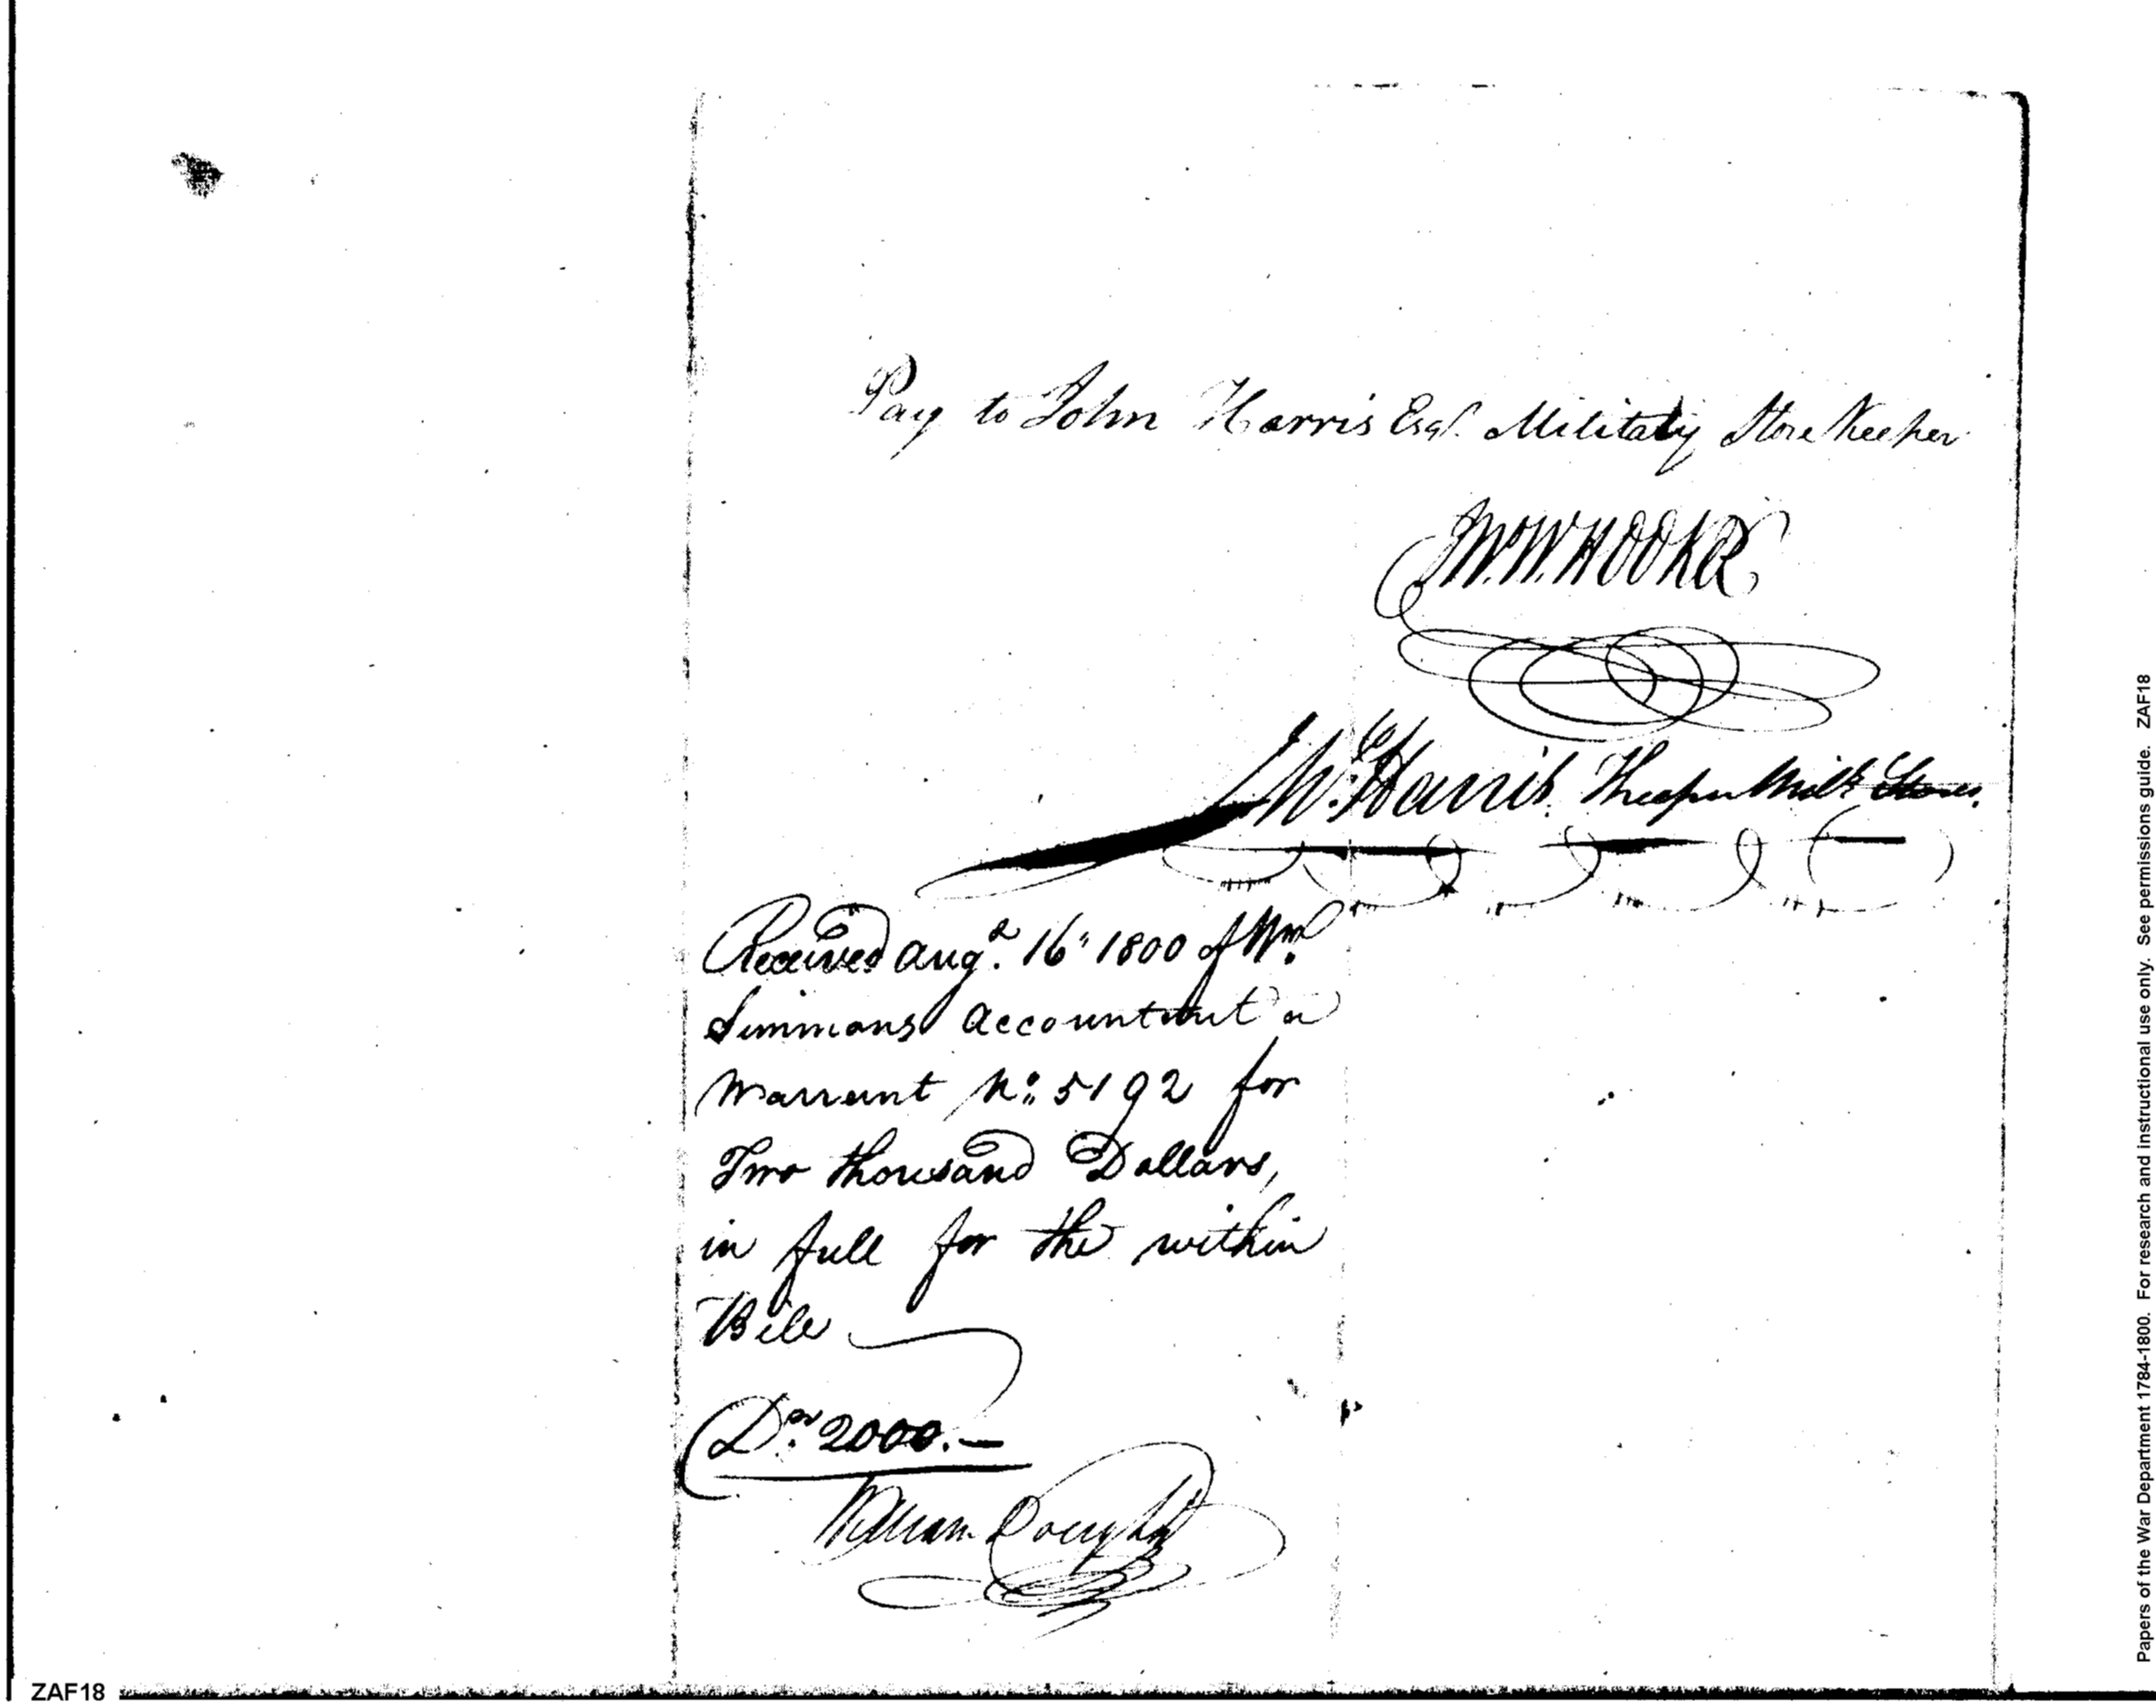 Pay to John Harris Esqr. Military Store Keeper
Wm. W. HOOKER
Jno. Harris. Keeper Mily. Stores.
Received Augt. 16th 1800 of Wm.
Simmons Accountant a
Warrant No. 5192 for
Two thousand Dollars,
in full for the within
Bill
Drs. 2000.—
William Doughty
ZAF18
Papers of the War Department 1784-1800. For research and instructional use only. See permissions guide. ZAF18